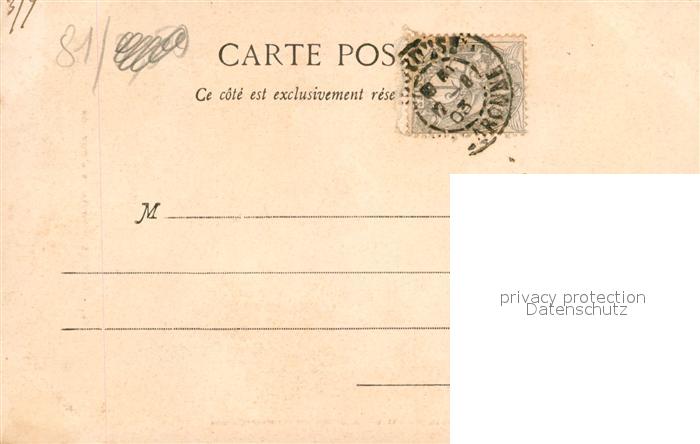 3/7
81/
CARTE POS
Ce côté est exclusivement rése
03
M
privacy protection
Datenschutz